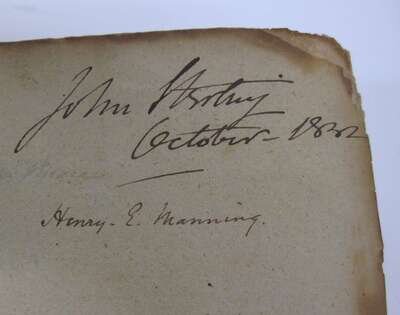 John Sterling
October - 1832
Henry. E. Manning.